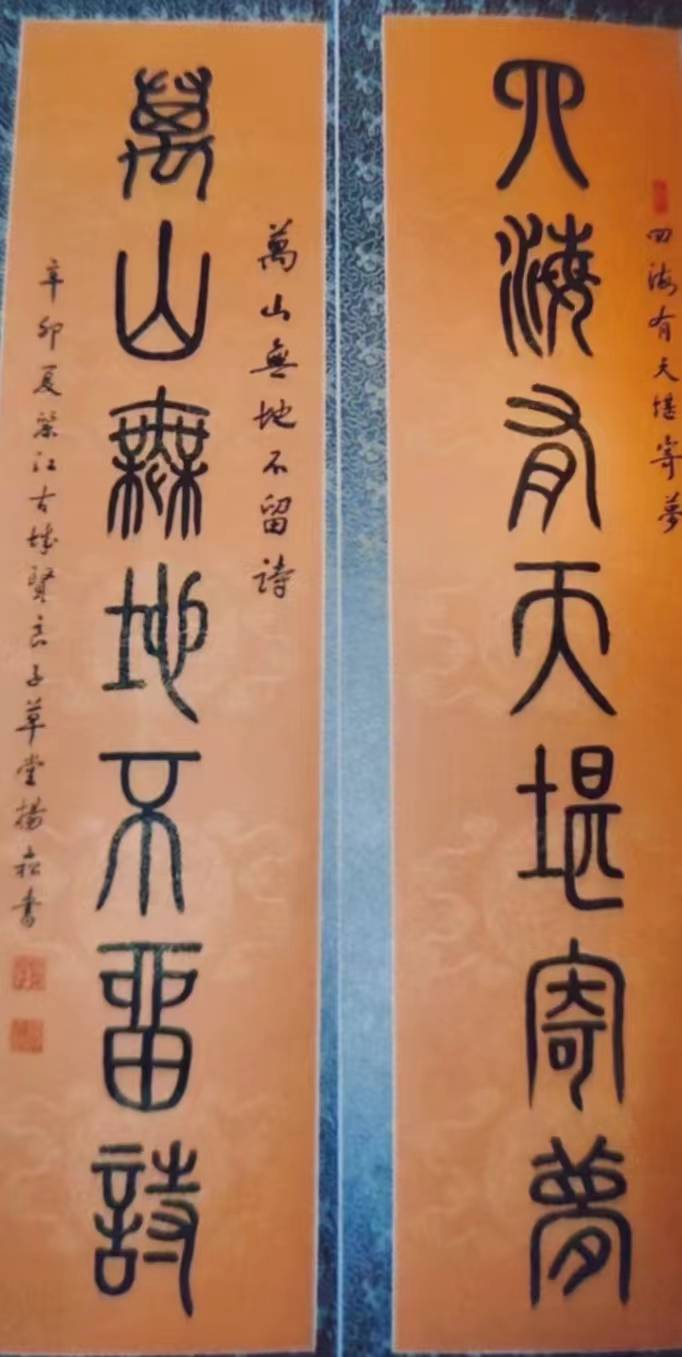 四海有天堪寄夢
四海有天堪寄夢
萬山無地不留詩
萬山無地不留詩
辛卯夏綦江古城賢良子草堂楊崧書